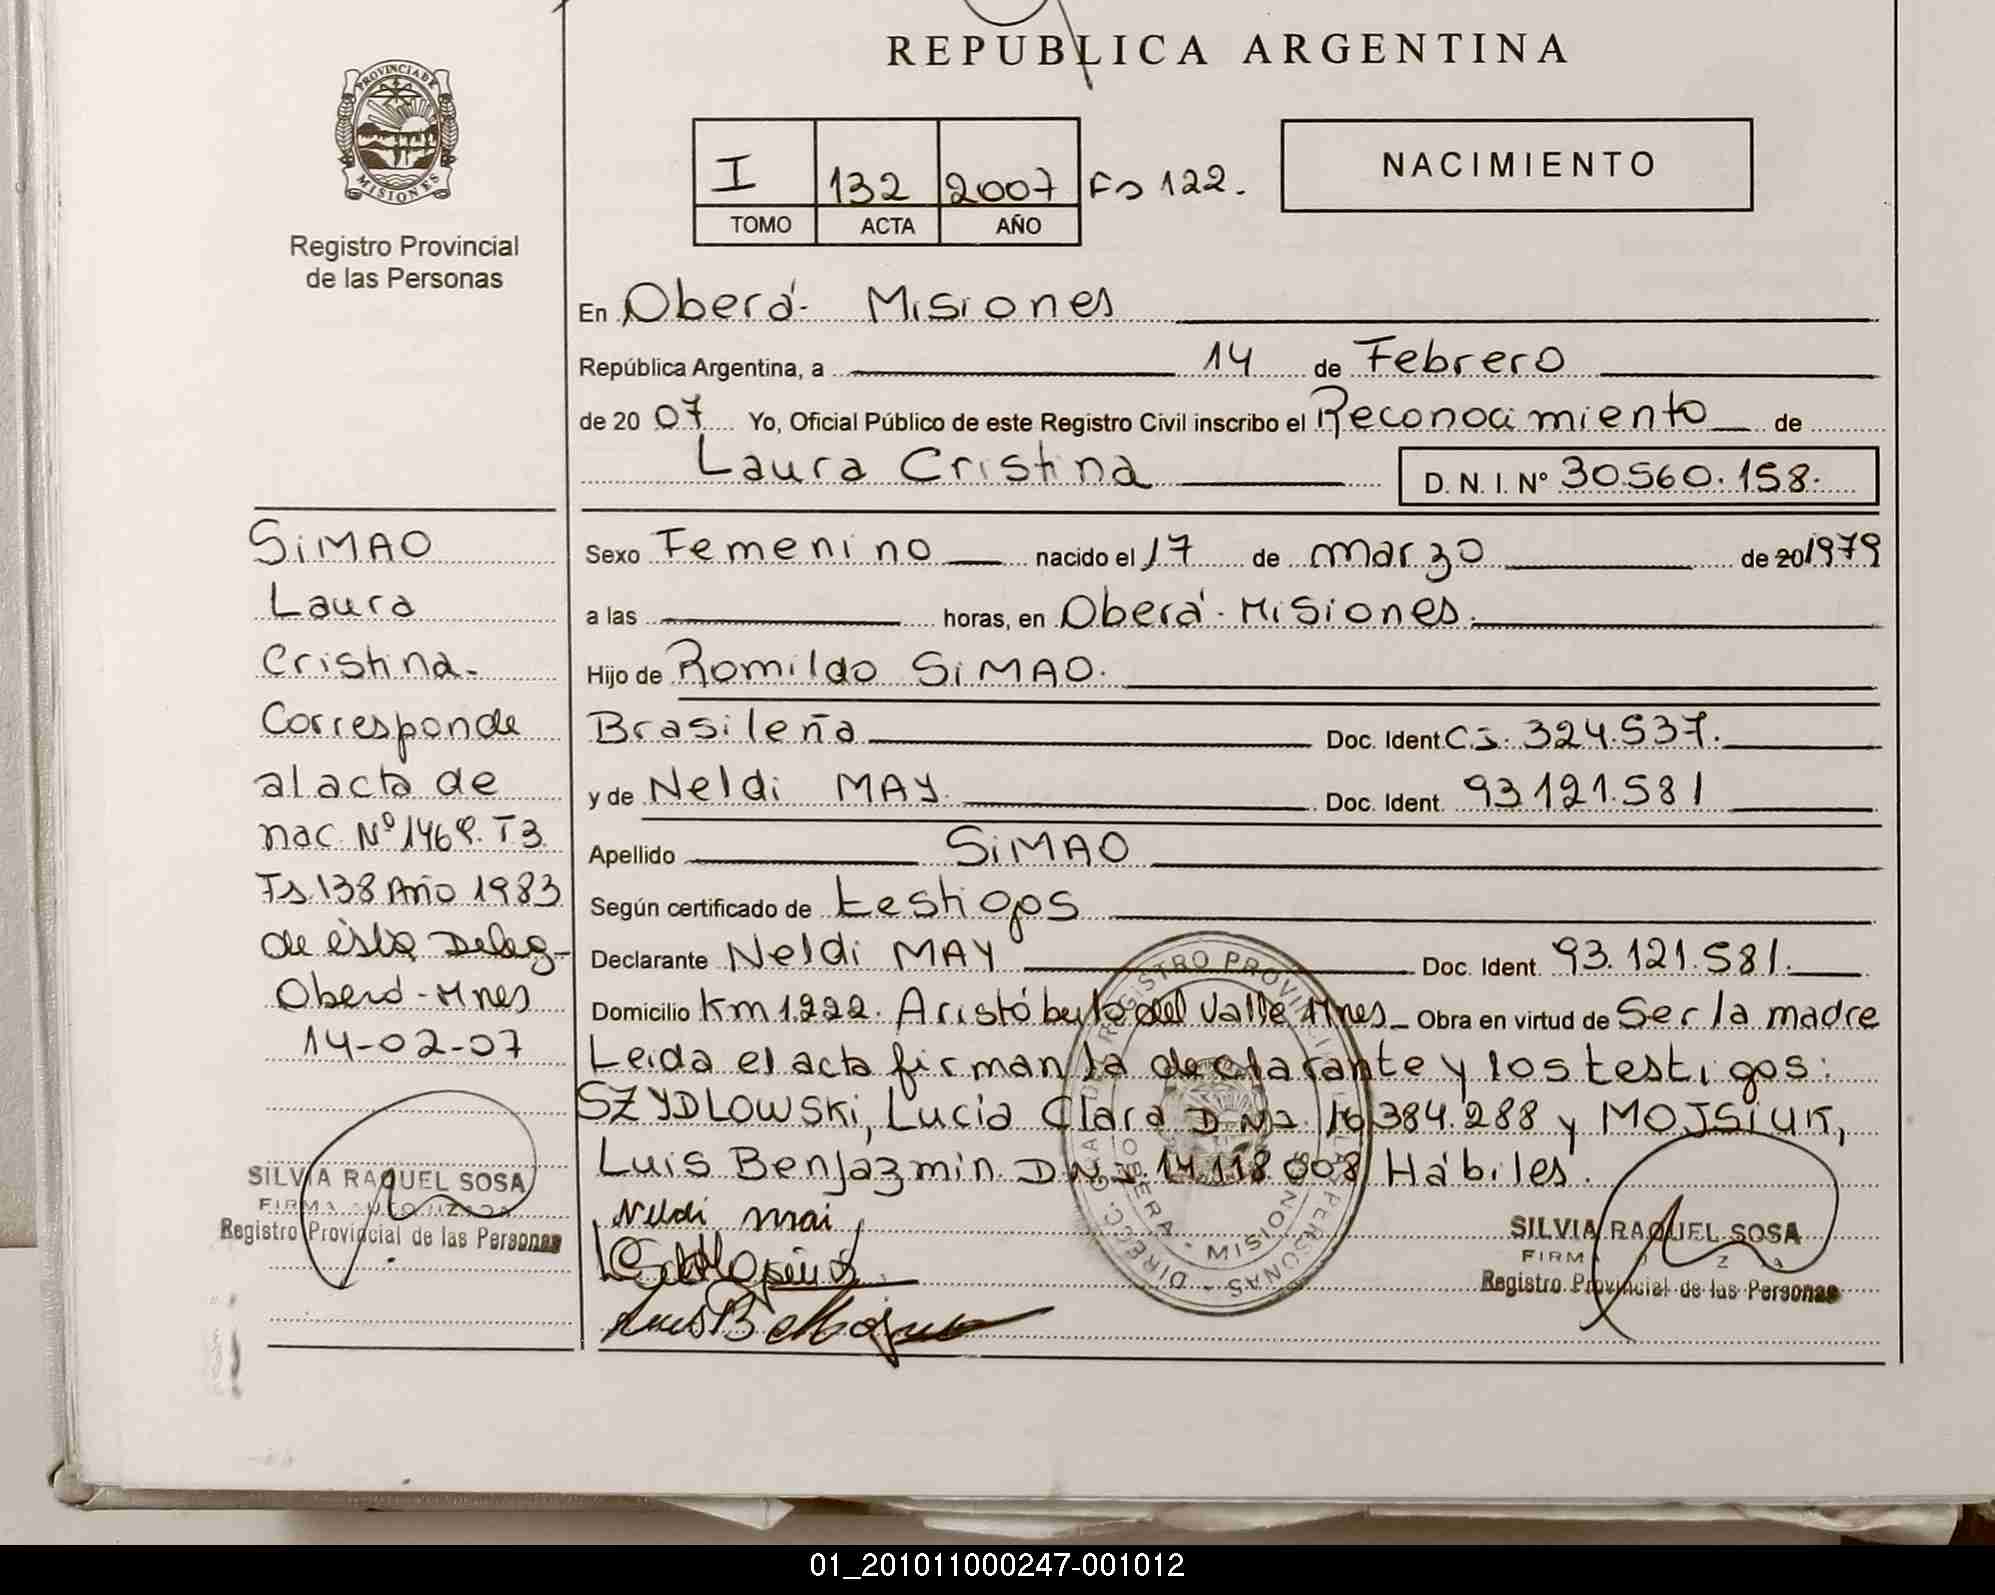 REPUBLICA ARGENTINA
PROVINCIA DE
MISIONES
Registro Provincial
de las Personas
I 132 2007 Fs 122.
TOMO ACTA AÑO
NACIMIENTO
En Oberá- Misiones
República Argentina, a 14 de Febrero
de 20 07 Yo, Oficial Público de este Registro Civil inscribo el Reconocimiento de
Laura Cristina D. N. I. Nº 30.560.158.
Sexo Femenino nacido el 17 de marzo de 20 1979
a las horas, en Oberá-Misiones.
Hijo de Romildo SiMAO.
Brasileña Doc. Ident. C.I. 324.537.
y de Neldi MAY. Doc. Ident. 93.121.581
Apellido SiMAO
Según certificado de testigos
Declarante Neldi MAY Doc. Ident. 93.121.581.
Domicilio Km 1.222. Aristóbulo del Valle Mnes Obra en virtud de Ser la madre
Leida el acta firman la declarante y los testigos:
SZYDLOWSKi, Lucia Clara D.N.I. 16.384.288 y MOJSiUK,
Luis Benjazmin. D.N.I. 14.118.008 Hábiles.
Neldi mai
SiMAO
Laura
Cristina-
Corresponde
al acta de
nac. Nº 1469. T3.
Fs. 138 Año 1983
de ésta Deleg-
Oberá-Mnes
14-02-07
SILVIA RAQUEL SOSA
FIRMA AUTORIZADA
Registro Provincial de las Personas
SILVIA RAQUEL SOSA
Registro Provincial de las Personas
REGISTRO PROVINCIAL DE LAS PERSONAS
OBERA - MISIONES
01_201011000247-001012